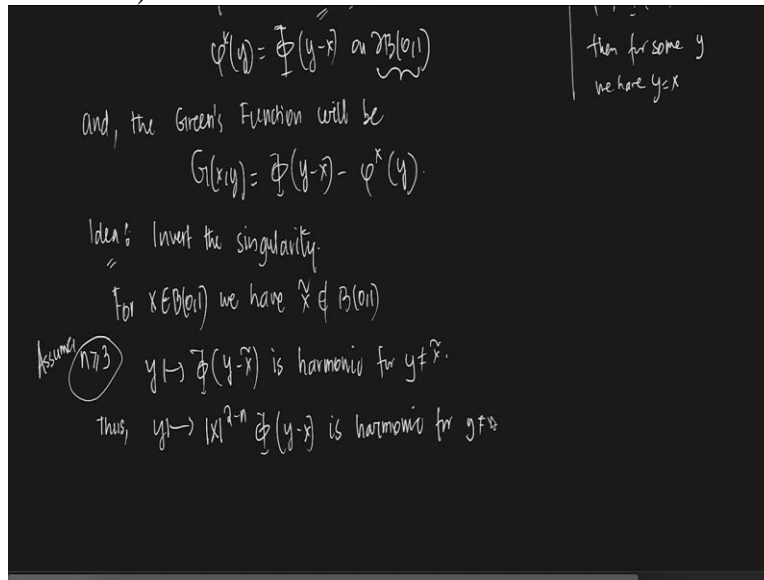 φˣ(y) = Φ(y-x) on ∂B(0,1)
then for some y
we have y=x
and, the Green's Function will be
G(x,y) = Φ(y-x) - φˣ(y).
Idea: Invert the singularity.
For x∈B(0,1) we have x̃ ∉ B(0,1)
Assume n≥3 y ↦ Φ(y-x̃) is harmonic for y≠x̃.
Thus, y ↦ |x|²⁻ⁿ Φ(y-x̃) is harmonic for y≠